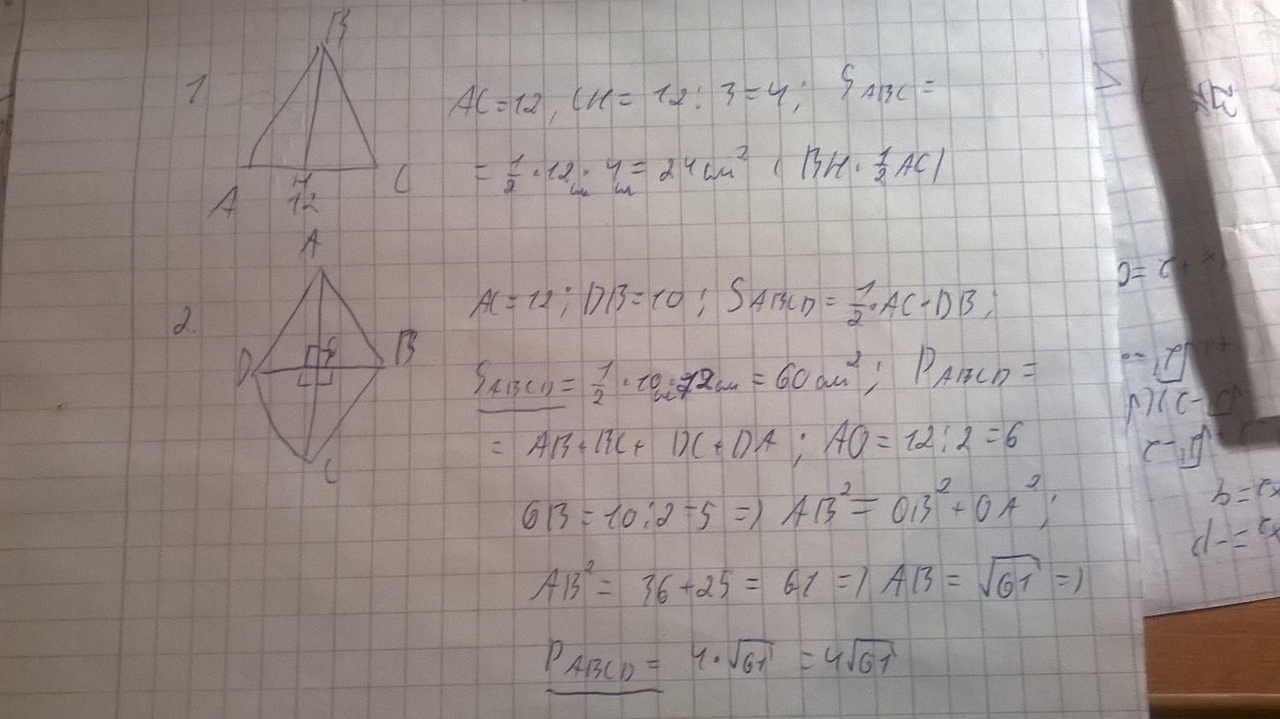 1
B
A
H
C
12
AC = 12, CH = 12 : 3 = 4; S ABC =
= 1/2 · 12 см · 4 см = 24 см² (BH · 1/2 AC)
2.
A
D
B
C
AC = 12; DB = 10; S ABCD = 1/2 · AC · DB;
S ABCD = 1/2 · 10 см · 12 см = 60 см²; P ABCD =
= AB + BC + DC + DA; AO = 12 : 2 = 6
OB = 10 : 2 = 5 => AB² = OB² + OA²;
AB² = 36 + 25 = 61 => AB = √61 =>
P ABCD = 4 · √61 = 4√61